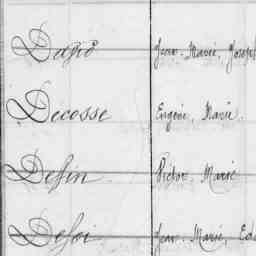 Dagio Jean-Marie, Joseph
Decosse Eugène, Marie
Defin Victor Marie
Defoi Jean-Marie, Edo